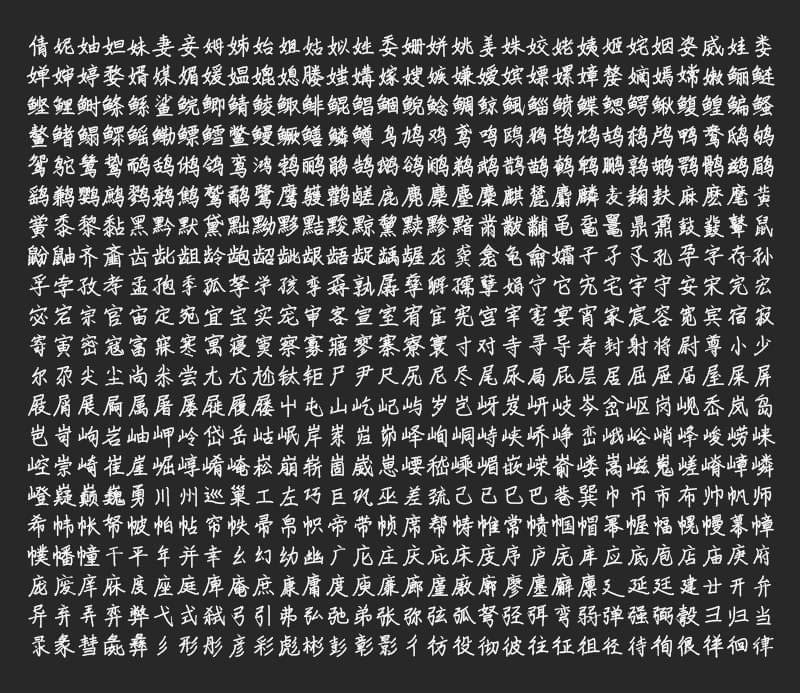 倩妮妯妲妹妻妾姆姊始姐姑姒姓委姗姘姚姜姝姣姥姨姬姹姻姿威娃娄
婵婶婷婺婿媒媚媛媪媲媳媵媸媾嫁嫂嫉嫌嫒嫔嫖嫘嫜嫠嫡嫣嫦嫩鲡鲢
鲣鲤鲥鲦鲧鲨鲩鲫鲭鲮鲰鲱鲲鲳鲴鲵鲶鲷鲸鲺鲻鲼鲽鳃鳄鳅鳆鳇鳊鳋
鳌鳍鳎鳏鳐鳓鳔鳕鳖鳗鳜鳝鳞鳟鸟鸠鸡鸢鸣鸥鸦鸨鸩鸪鸫鸬鸭鸯鸱鸲
鸳鸵鸶鸷鸸鸹鸺鸽鸾鸿鹁鹂鹃鹄鹅鹆鹇鹈鹉鹊鹋鹌鹎鹏鹑鹕鹗鹘鹚鹛
鹞鹣鹦鹧鹨鹩鹪鹫鹬鹭鹰鹱鹳鹾鹿麂麇麈麋麒麓麝麟麦麴麸麻麽麾黄
黉黍黎黏黑黔默黛黜黝黟黠黢黥黧黩黪黯黹黻黼黾鼋鼍鼎鼐鼓鼗鼙鼠
鼢鼬齐齑齿龀龃龄龅龆龇龈龉龊龋龌龙龚龛龟龠孀子孑孓孔孕字存孙
孚孛孜孝孟孢季孤孥学孩孪孬孰孱孳孵孺孽娟宁它宄宅宇守安宋完宏
宓宕宗官宙定宛宜宝实宠审客宣室宥宦宪宫宰害宴宵家宸容宽宾宿寂
寄寅密寇富寐寒寓寝寞察寡寤寥寨寮寰寸对寺寻导寿封射将尉尊小少
尔尕尖尘尚尜尝尢尤尬钛钜尸尹尺尻尼尽尾尿局屁层居屈屉届屋屎屏
屐屑展屙属屠屡屣履屦屮屯山屹屺屿岁岂岈岌岍岐岑岔岖岗岘岙岚岛
岜岢岣岩岫岬岭岱岳岵岷岸岽岿峁峄峋峒峙峡峤峥峦峨峪峭峰峻崂崃
崆崇崎崔崖崛崞崤崦崧崩崭崮崴崽崾嵇嵊嵋嵌嵘嵛嵝嵩嵫嵬嵯嵴嶂嶙
嶝嶷巅巍勇川州巡巢工左巧巨巩巫差巯己已巳巴巷巽巾币市布帅帆师
希帏帐帑帔帕帖帘帙帚帛帜帝带帧席帮帱帷常帻帼帽幂幄幅幌幔幕幛
幞幡幢干平年并幸幺幻幼幽广庀庄庆庇床庋序庐庑库应底庖店庙庚府
庞废庠庥度座庭庳庵庶康庸庹庾廉廊廑廒廓廖廛廨廪廴延廷建廿开弁
异弃弄弈弊弋式弑弓引弗弘弛弟张弥弦弧弩弪弭弯弱弹强弼彀彐归当
录彖彗彘彝彡形彤彦彩彪彬彭彰影彳彷役彻彼往征徂径待徇很徉徊律